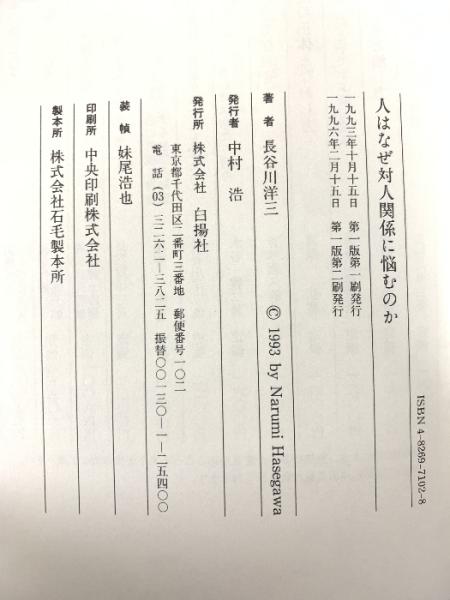 人はなぜ対人関係に悩むのか
一九九三年十月十五日　第一版第一刷発行
一九九六年二月十五日　第一版第二刷発行
著者　長谷川洋三
© 1993 by Narumi Hasegawa
発行者　中村　浩
発行所　株式会社　白揚社
東京都千代田区二番町三番地　郵便番号一〇二
電話(03)三二六二―三八二五　振替〇〇一三〇―一―二五四〇〇
装幀　妹尾浩也
印刷所　中央印刷株式会社
製本所　株式会社石毛製本所
ISBN 4-8269-7102-8